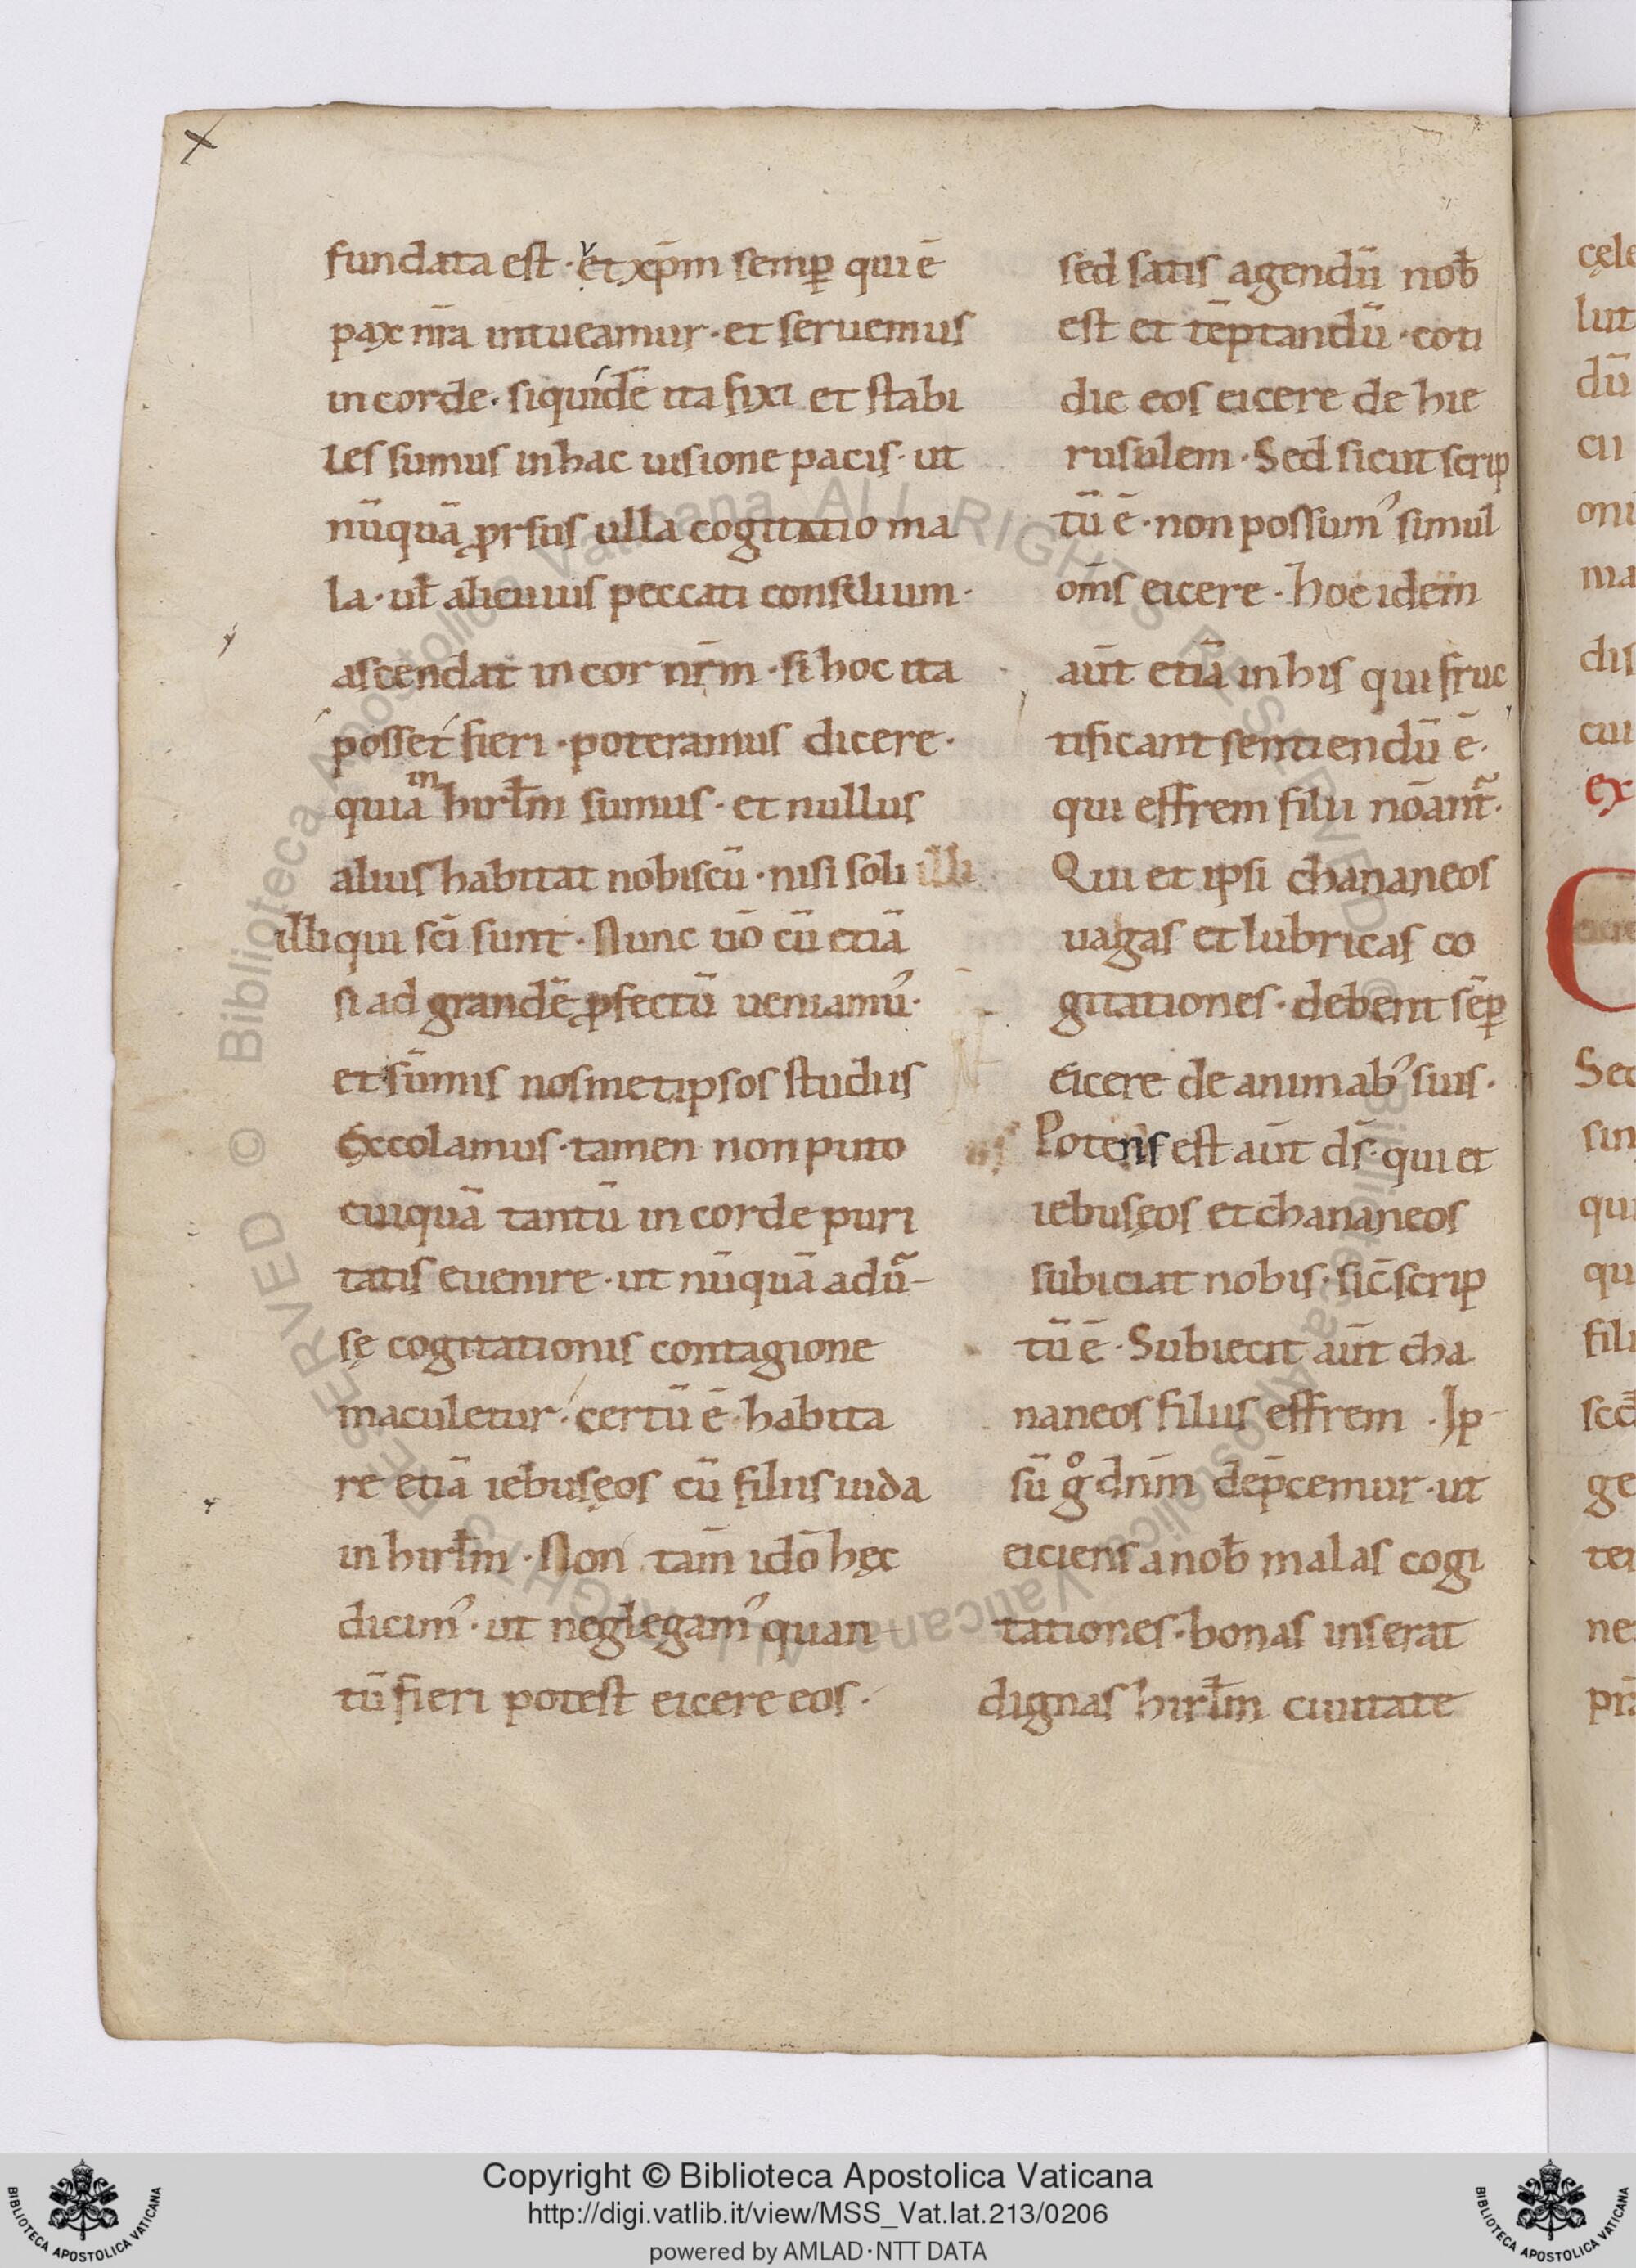 fundata est · et xp̄m semꝑ qui ē
pax nr̄a intueamur · et seruemus
in corde · siquidē ita fixi et stabi
les sumus in hac uisione pacis · ut
nūquā ꝓrsus ulla cogitatio ma
la · ul̄ alicuius peccati consilium ·
ascendat in cor nr̄m · si hoc ita
posset fieri · poteramus dicere ·
quia in hirl̄m sumus · et nullus
alius habitat nobiscū · nisi soli illi
illi qui sc̄i sunt · Nunc uō cū etiā
si ad grandē ꝓfectū ueniamꝰ ·
et sūmis nosmetipsos studiis
Excolamus · tamen non puto
cuiquā tantū in corde puri
tatis euenire · ut nūquā adū-
sę cogitationis contagione
maculetur · certū ē habita
re etiā iebusęos cū filiis iuda
in hirl̄m · Non tam̄ idō hęc
dicimꝰ · ut neglegamꝰ quan-
tū fieri potest eicere eos ·
sed satis agendū nob̄
est et tēptandū · coti
die eos eicere de hie
rusalem · Sed sicut scrip
tū ē · non possumꝰ simul
om̄s eicere · hoc idem
aūt etiā in his qui fruc
tificant sentiendū ē ·
qui effrem filii nōant̄ ·
Qui et ipsi chananeos
uagas et lubricas co
gitationes · debent sēꝑ
eicere de animabꝰ suis ·
Potens est aūt ds̄ · qui et
iebusęos et chananeos
subiciat nobis · sic̄ scrip
tū ē · Subiecit aūt cha
naneos filiis effrem · Ip-
sū gͦ dnm̄ dep̄cemur · ut
eiciens a nob̄ malas cogi
tationes · bonas inserat
dignas hirl̄m ciuitate
cęle
lut
dū
cu
oni
ma
dis
cui
ex
C
Sed
sin
qui
qu
fili
scd̄
ge
ter
ne
Biblioteca Apostolica Vaticana ALL RIGHTS RESERVED ©
Biblioteca Apostolica Vaticana ALL RIGHTS RESERVED ©
Copyright © Biblioteca Apostolica Vaticana
http://digi.vatlib.it/view/MSS_Vat.lat.213/0206
powered by AMLAD·NTT DATA
BIBLIOTECA APOSTOLICA VATICANA
BIBLIOTECA APOSTOLICA VATICANA